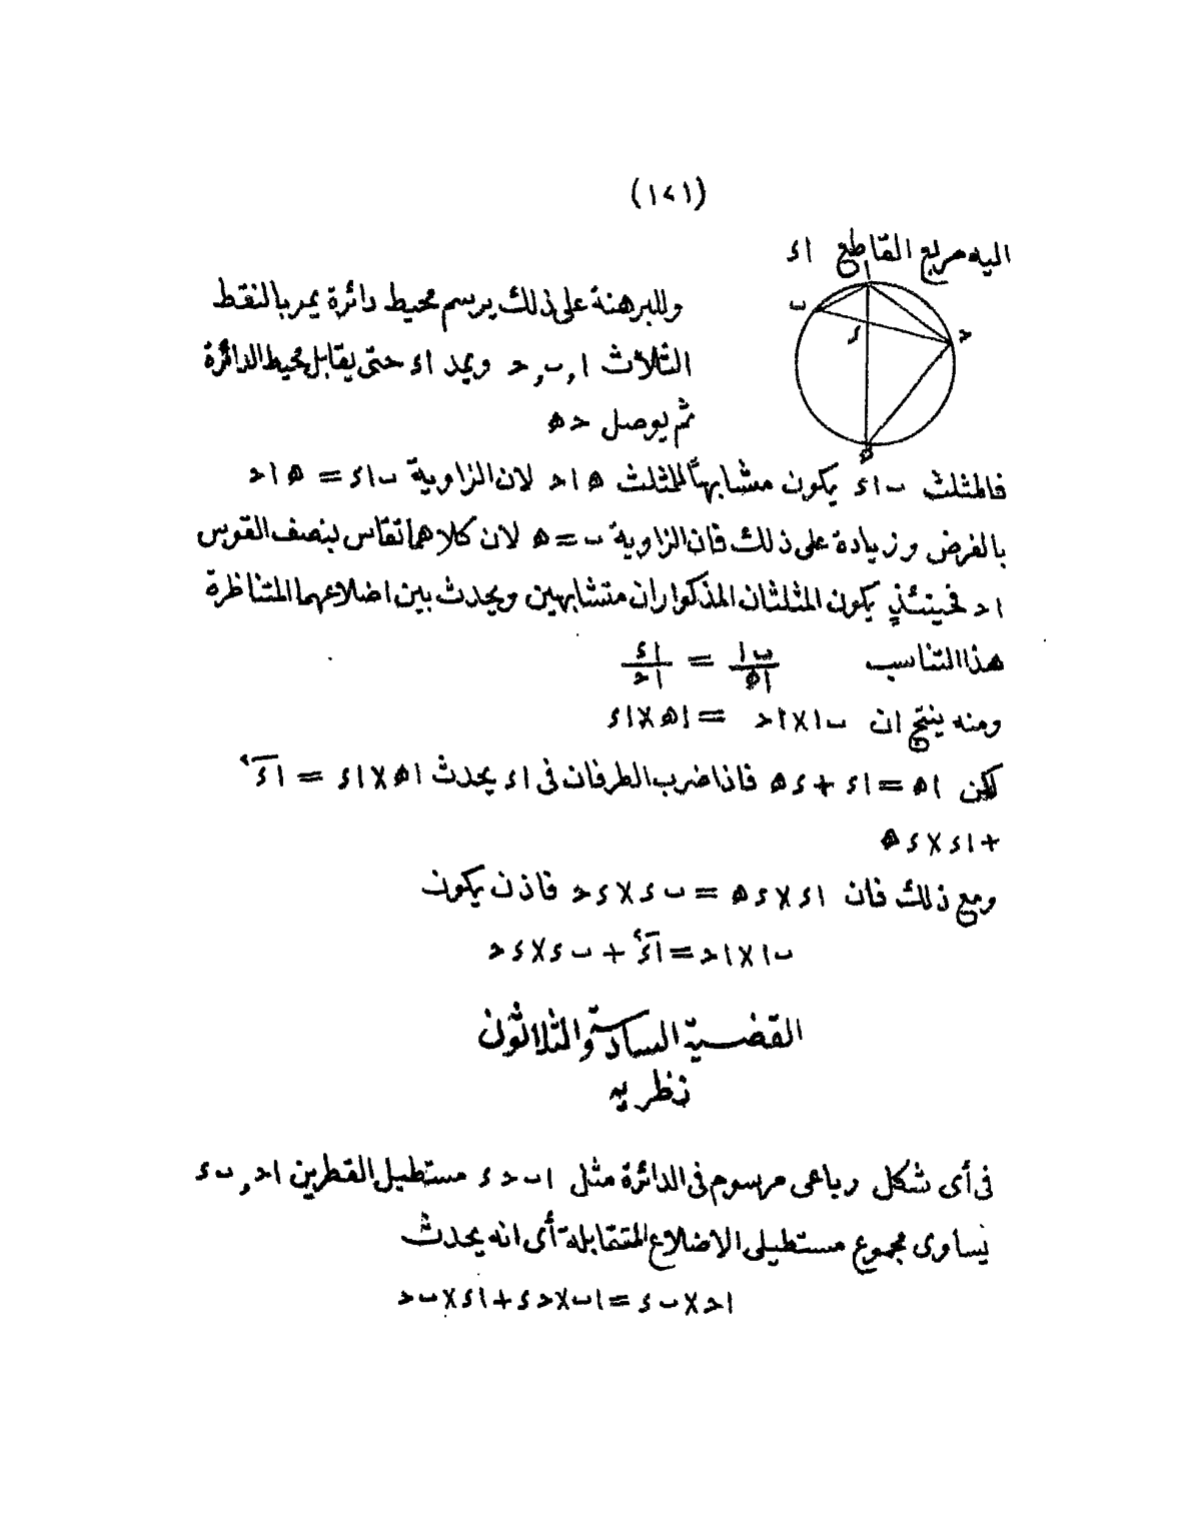 (١٢١)
اليه مربع القاطع ا ء
وللبرهنة على ذلك يرسم محيط دائرة يمر بالنقط
الثلاث ا , ٮ , ح ويمد ا ء حتى يقابل محيط الدائرة
ثم يوصل ح ه
فالمثلث ٮ ا ء يكون مشابهاً للمثلث ه ا ح لان الزاوية ٮ ا ء = ه ا ح
بالفرض وزيادة على ذلك فان الزاوية ٮ = ه لان كلاهما تقاس بنصف القوس
ا ح فحينئذٍ يكون المثلثان المذكوران متشابهين ويحدث بين اضلاعهما المتناظرة
هذا التناسب ٮ ا / ا ه = ا ء / ا ح
ومنه ينتج ان ٮ ا × ا ح = ا ه × ا ء
لكن ا ه = ا ء + ء ه فاذا ضرب الطرفان فى ا ء يحدث ا ه × ا ء = ا ء٢
+ ا ء × ء ه
ومع ذلك فان ا ء × ء ه = ٮ ء × ء ح فاذن يكون
ٮ ا × ا ح = ا ء٢ + ٮ ء × ء ح
القضية السادسة والثلاثون
نظريه
فى أى شكل رباعى مرسوم فى الدائرة مثل ا ٮ ح ء مستطيل القطرين ا ح , ٮ ء
يساوى مجموع مستطيلى الاضلاع المتقابلة أى انه يحدث
ا ح × ٮ ء = ا ٮ × ح ء + ا ء × ٮ ح
ا
ٮ
ح
ء
ه